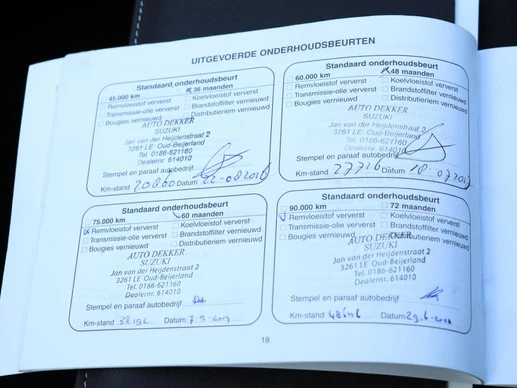 UITGEVOERDE ONDERHOUDSBEURTEN
Standaard onderhoudsbeurt
45.000 km 36 maanden
Remvloeistof ververst Koelvloeistof ververst
Transmissie-olie ververst Brandstoffilter vernieuwd
Bougies vernieuwd Distributieriem vernieuwd
AUTO DEKKER
SUZUKI
Jan van der Heijdenstraat 2
3261 LE Oud-Beijerland
Tel. 0186-621160
Dealernr. 614010
Stempel en paraaf autobedrijf
Km-stand 20860 Datum 22-08-2016
Standaard onderhoudsbeurt
60.000 km 48 maanden
Remvloeistof ververst Koelvloeistof ververst
Transmissie-olie ververst Brandstoffilter vernieuwd
Bougies vernieuwd Distributieriem vernieuwd
AUTO DEKKER
SUZUKI
Jan van der Heijdenstraat 2
3261 LE Oud-Beijerland
Tel. 0186-621160
Dealernr. 614010
Stempel en paraaf autobedrijf
Km-stand 27716 Datum 18-07-2017
Standaard onderhoudsbeurt
75.000 km 60 maanden
Remvloeistof ververst Koelvloeistof ververst
Transmissie-olie ververst Brandstoffilter vernieuwd
Bougies vernieuwd Distributieriem vernieuwd
AUTO DEKKER
SUZUKI
Jan van der Heijdenstraat 2
3261 LE Oud-Beijerland
Tel. 0186-621160
Dealernr. 614010
Stempel en paraaf autobedrijf
Km-stand Datum 7-5-2019
Standaard onderhoudsbeurt
90.000 km 72 maanden
Remvloeistof ververst Koelvloeistof ververst
Transmissie-olie ververst Brandstoffilter vernieuwd
Bougies vernieuwd Distributieriem vernieuwd
AUTO DEKKER
SUZUKI
Jan van der Heijdenstraat 2
3261 LE Oud-Beijerland
Tel. 0186-621160
Dealernr. 614010
Stempel en paraaf autobedrijf
Km-stand 48646 Datum
18